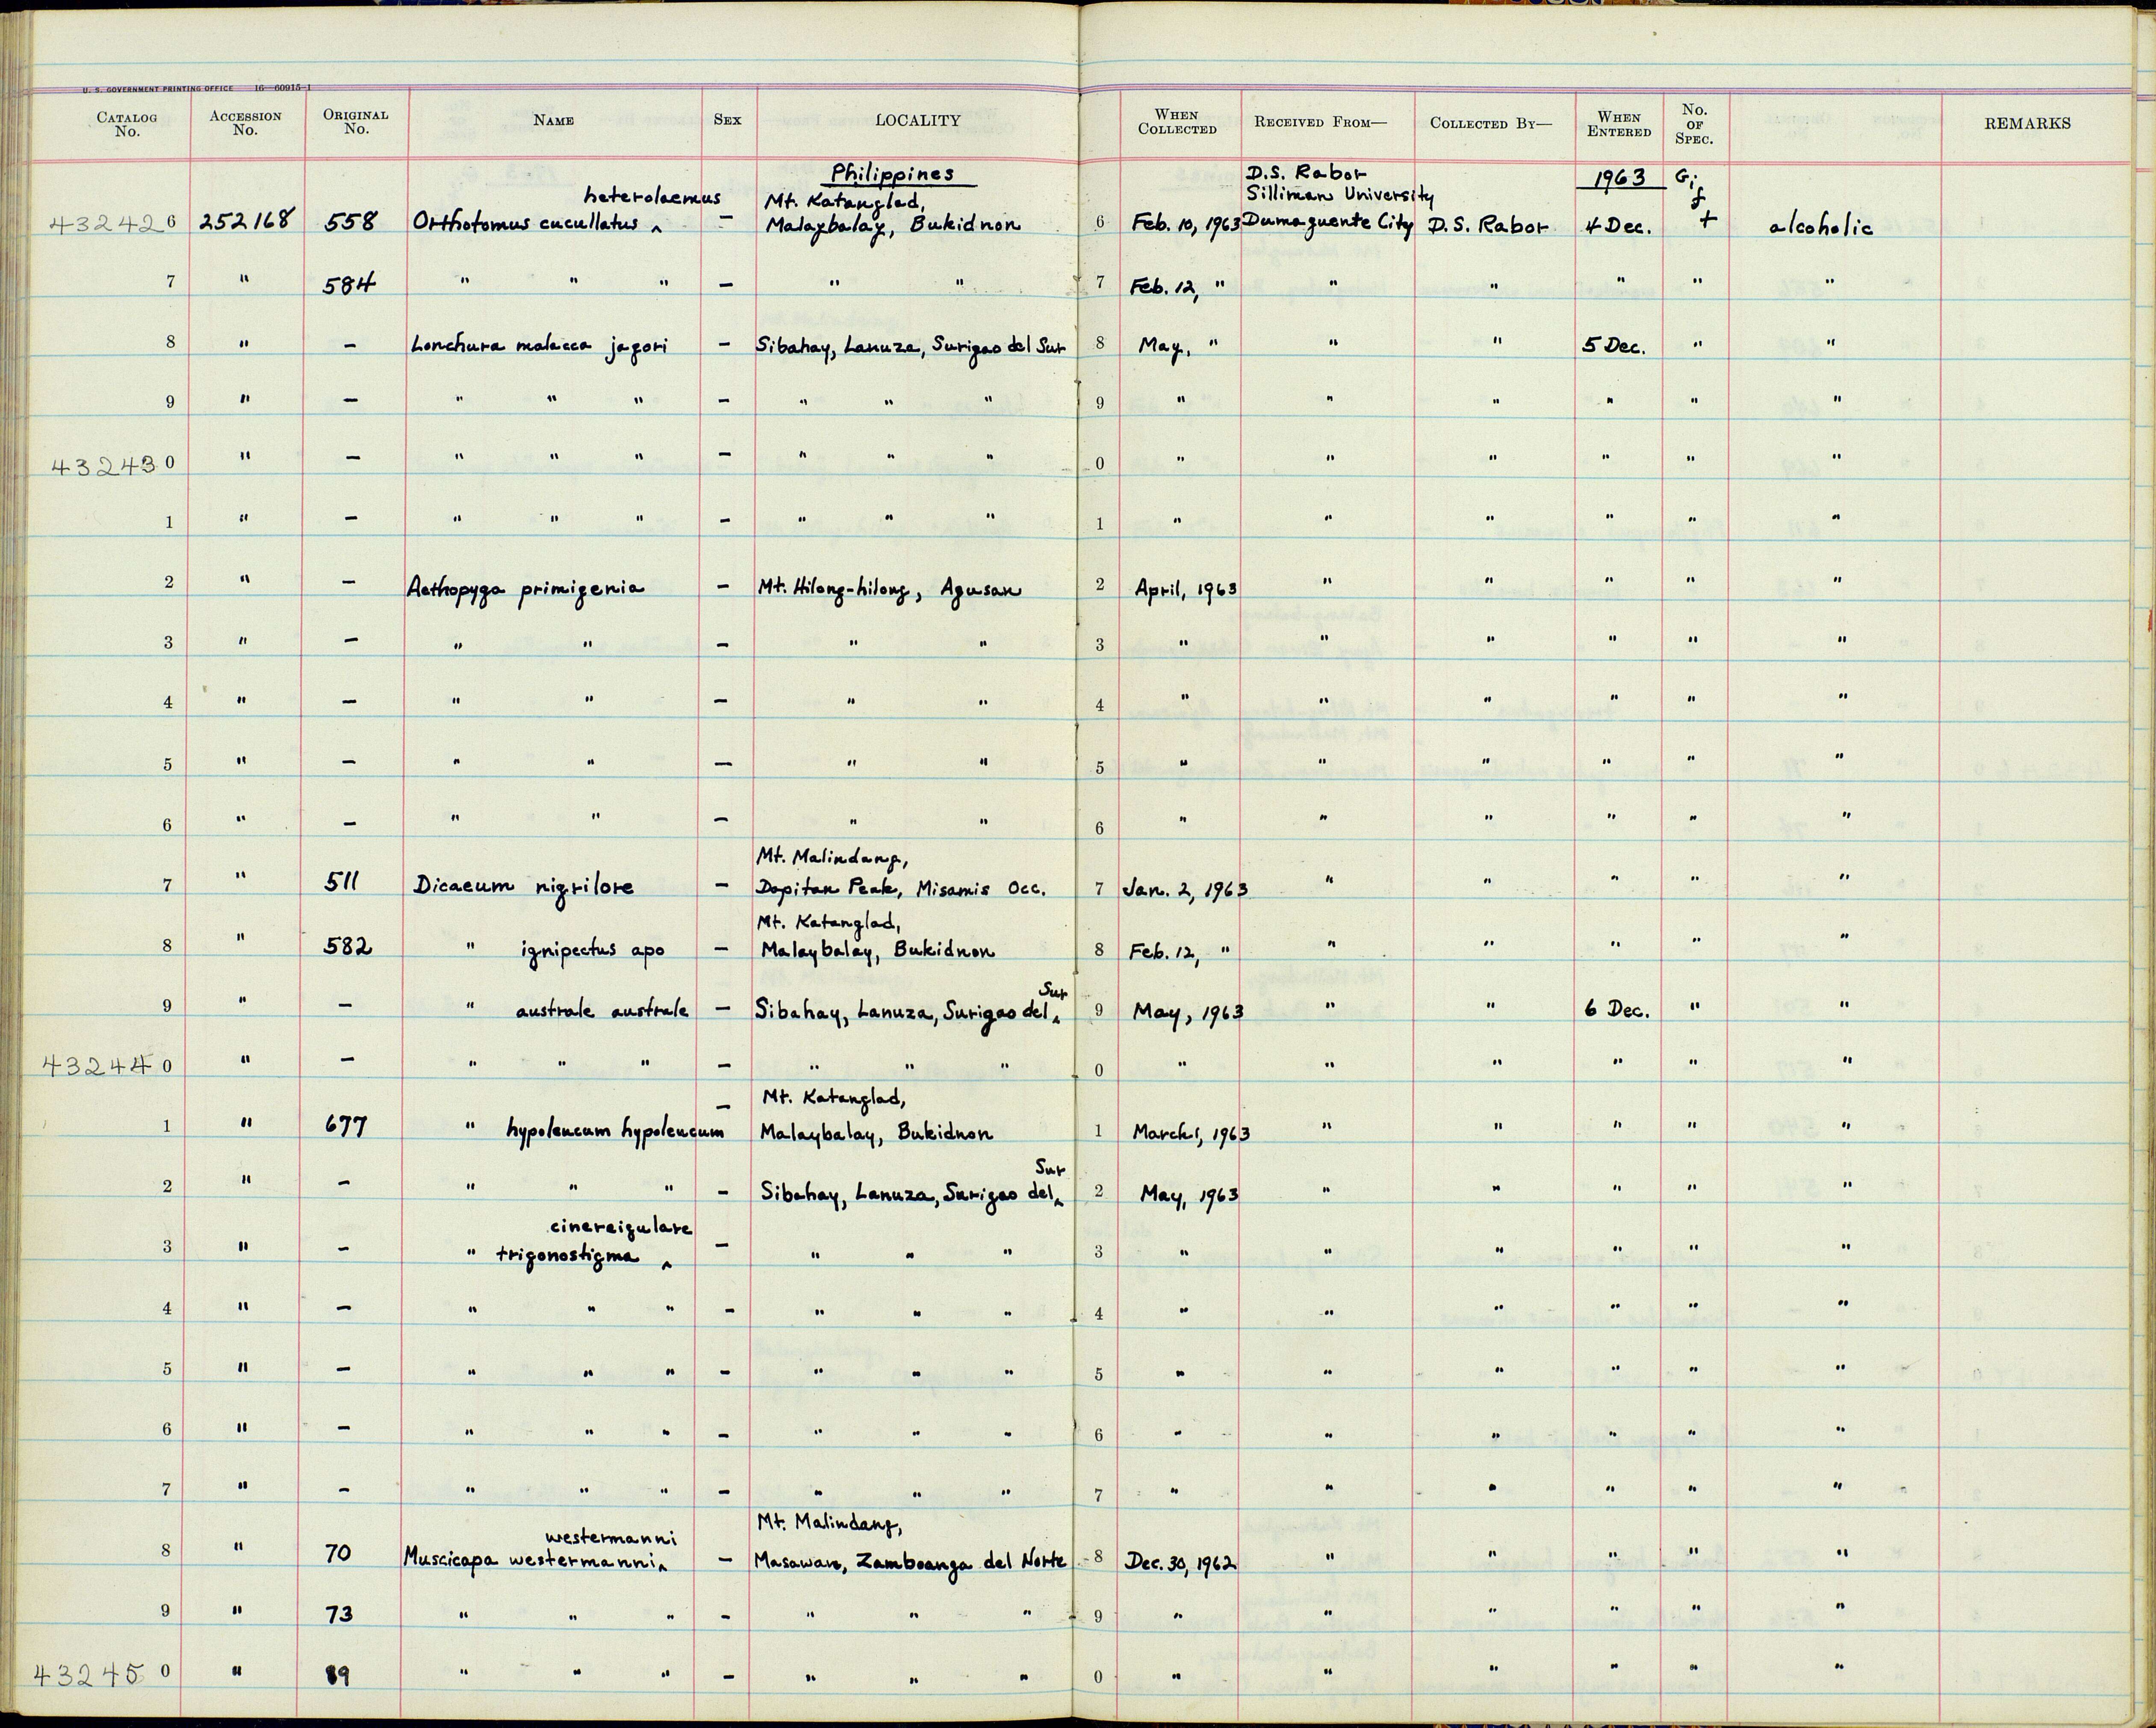 U. S. GOVERNMENT PRINTING OFFICE 16—60915-1
CATALOG No. ACCESSION No. ORIGINAL No. NAME SEX LOCALITY WHEN COLLECTED RECEIVED FROM— COLLECTED BY— WHEN ENTERED No. OF SPEC. REMARKS
Philippines D.S. Rabor 1963 Gift
heterolaemus Mt. Katanglad, Silliman University
432426 252168 558 Orthotomus cucullatus ‸ – Malaybalay, Bukidnon 6 Feb. 10, 1963 Dumaguente City D.S. Rabor 4 Dec. + alcoholic
7 " 584 " " " – " " 7 Feb. 12, " " " " " "
8 " – Lonchura malacca jagori – Sibahay, Lanuza, Surigao del Sur 8 May, " " " 5 Dec. " "
9 " – " " " – " " " 9 " " " " " "
432430 " – " " " – " " " 0 " " " " " "
1 " – " " " – " " " 1 " " " " " "
2 " – Aethopyga primigenia – Mt. Hilong-hilong, Agusan 2 April, 1963 " " " " "
3 " – " " – " " 3 " " " " " "
4 " – " " – " " 4 " " " " " "
5 " – " " – " " 5 " " " " " "
6 " – " " – " " 6 " " " " " "
Mt. Malindang,
7 " 511 Dicaeum nigrilore – Dapitan Peak, Misamis Occ. 7 Jan. 2, 1963 " " " " "
Mt. Katanglad,
8 " 582 " ignipectus apo – Malaybalay, Bukidnon 8 Feb. 12, " " " " " "
Sur
9 " – " australe australe – Sibahay, Lanuza, Surigao del ‸ 9 May, 1963 " " 6 Dec. " "
432440 " – " " " – " " " 0 " " " " " "
Mt. Katanglad,
1 " 677 " hypoleucum hypoleucum – Malaybalay, Bukidnon 1 March 1, 1963 " " " " "
Sur
2 " – " " " – Sibahay, Lanuza, Surigao del ‸ 2 May, 1963 " " " " "
cinereigulare
3 " – " trigonostigma ‸ – " " " 3 " " " " " "
4 " – " " " – " " " 4 " " " " " "
5 " – " " " – " " " 5 " " " " " "
6 " – " " " – " " " 6 " " " " " "
7 " – " " " – " " " 7 " " " " " "
westermanni Mt. Malindang,
8 " 70 Muscicapa westermanni ‸ – Masawan, Zamboanga del Norte 8 Dec. 30, 1962 " " " " "
9 " 73 " " " – " " " 9 " " " " " "
432450 " 89 " " " – " " " 0 " " " " " "